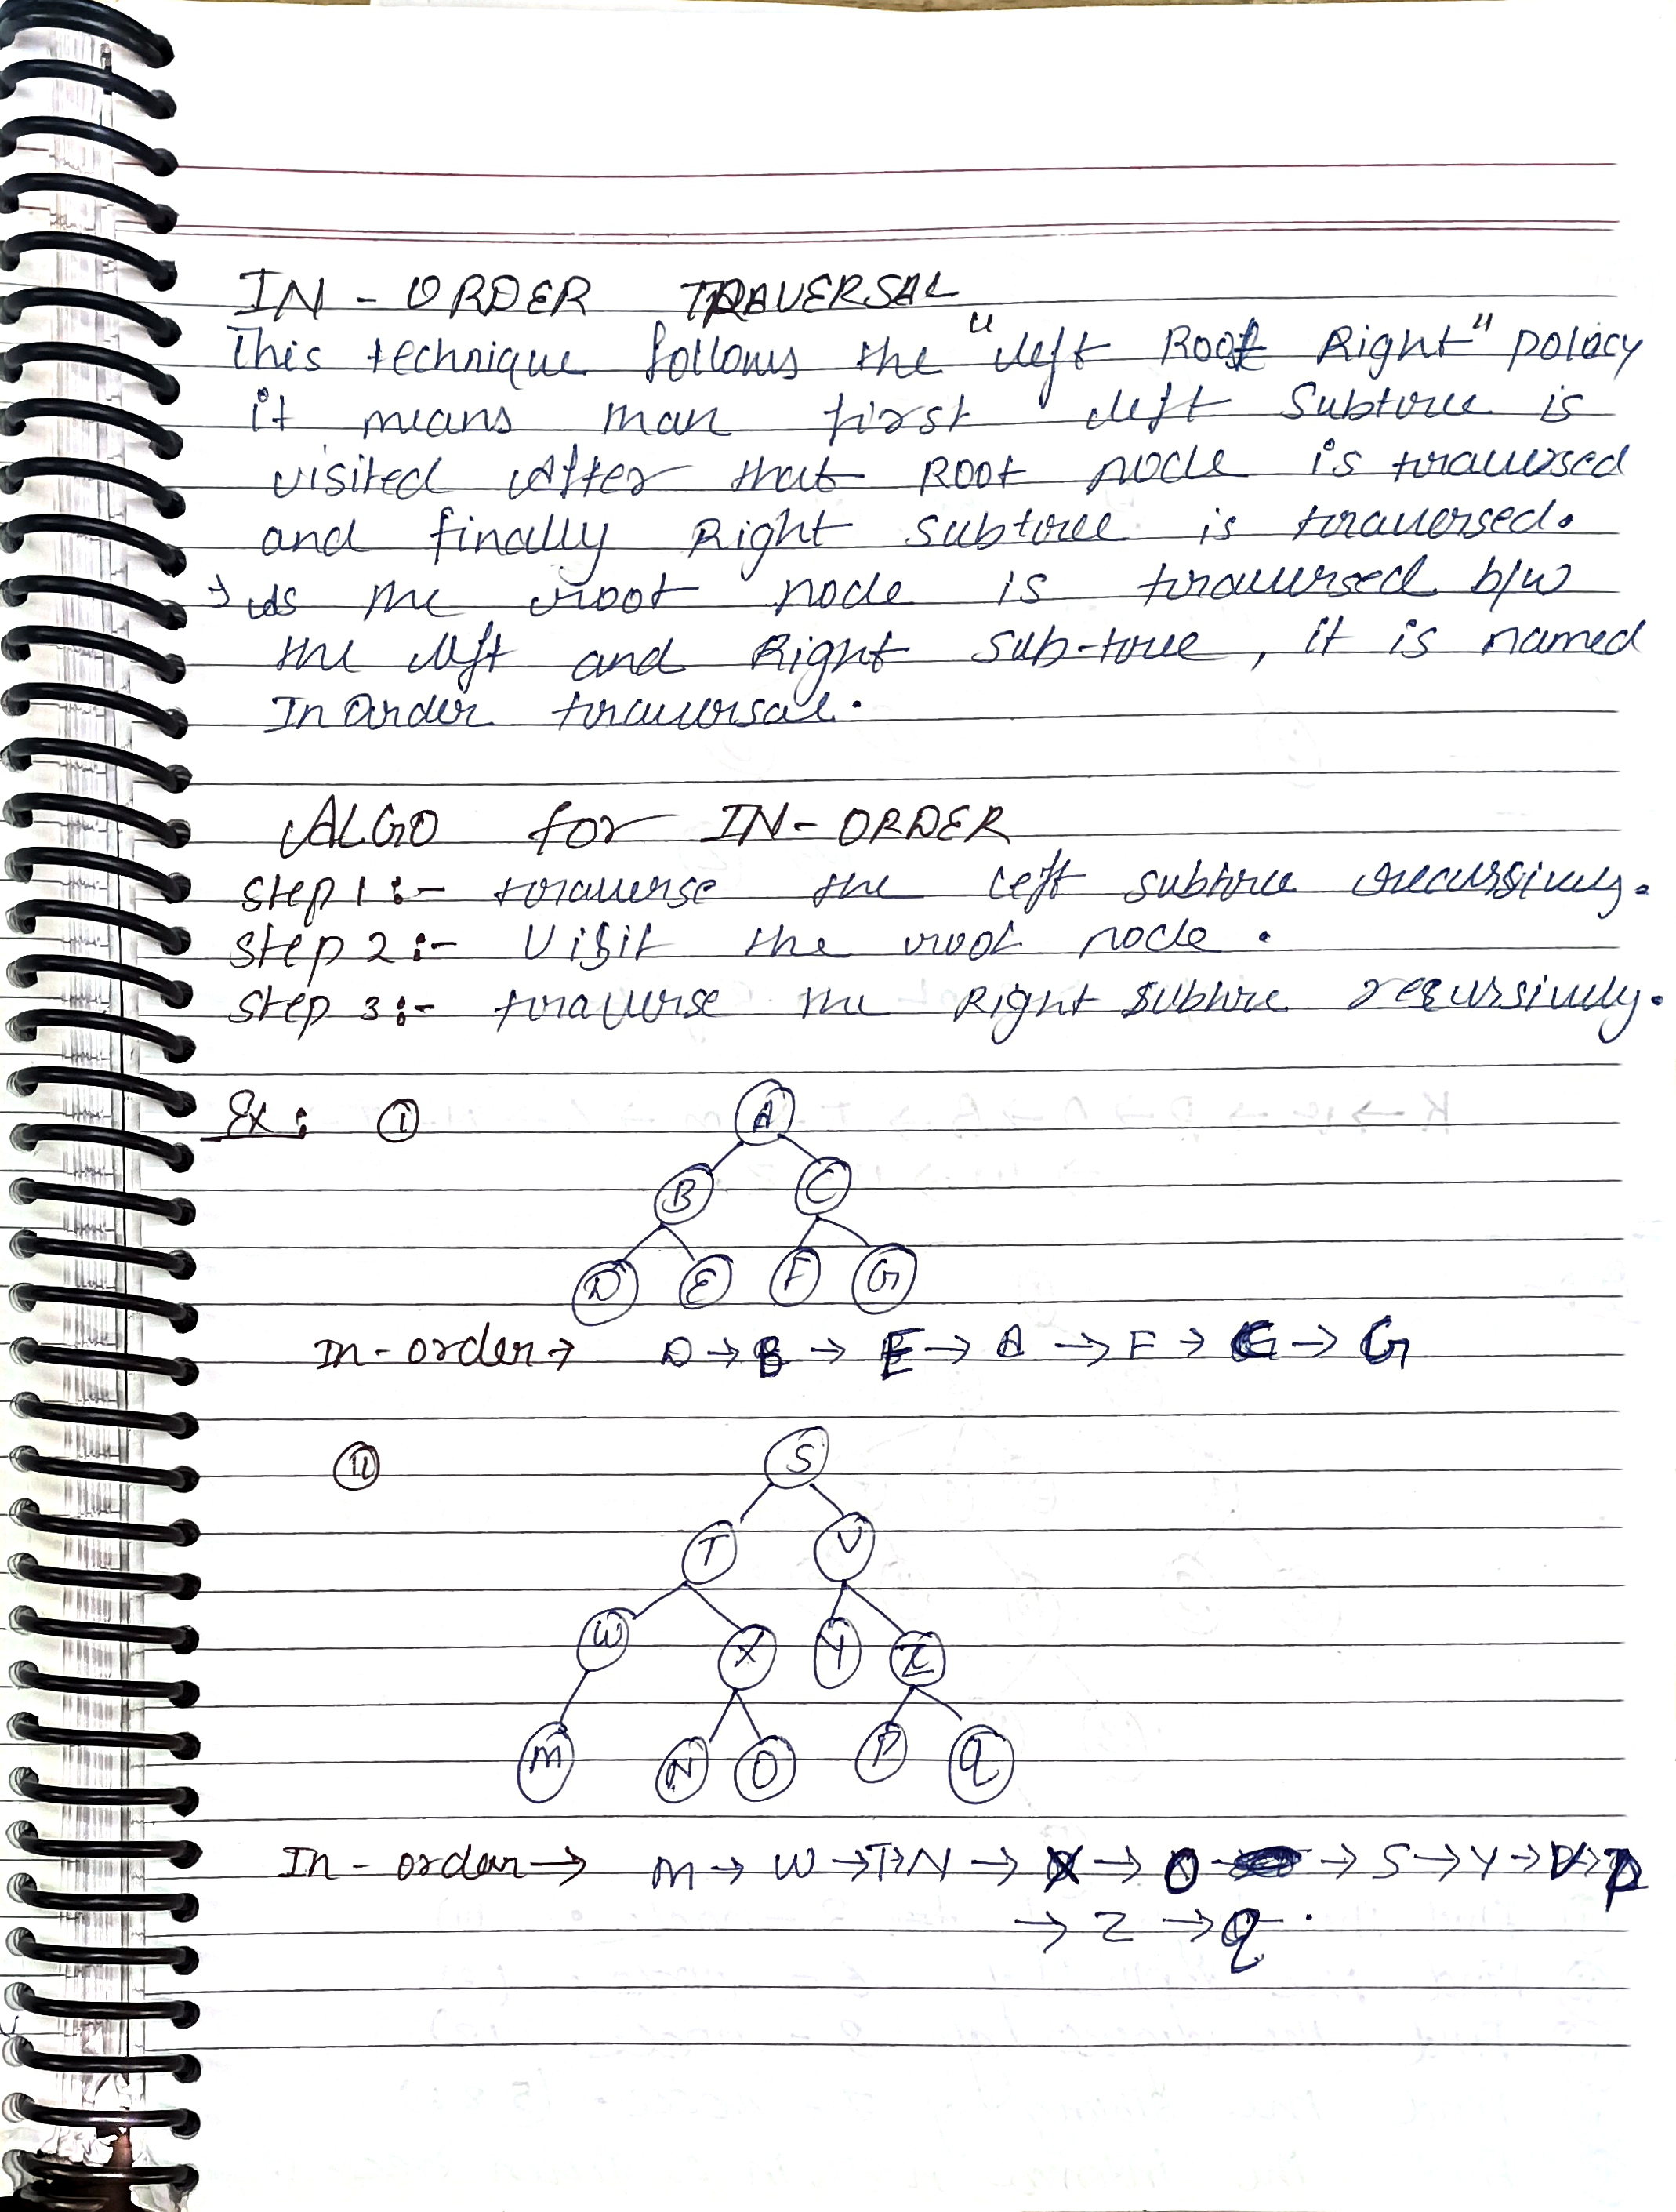 IN - ORDER TRAVERSAL
This technique follows the "left Root Right" policy
it means man first left Subtree is
visited After that Root node is traversed
and finally Right subtree is traversed.
→ As the root node is traversed b/w
the left and Right sub-tree, it is named
In Order traversal.
ALGO for IN-ORDER
Step 1 :- traverse the left subtree recursively.
Step 2 :- Visit the root node.
Step 3 :- traverse the Right subtree recursively.
Ex: (i)
A
B C
D E F G
In-order → D → B → E → A → F → C → G
(ii)
S
T V
W X Y Z
M N O P q
In-order → M → W → T → N → X → O → S → Y → V → P
→ Z → q.